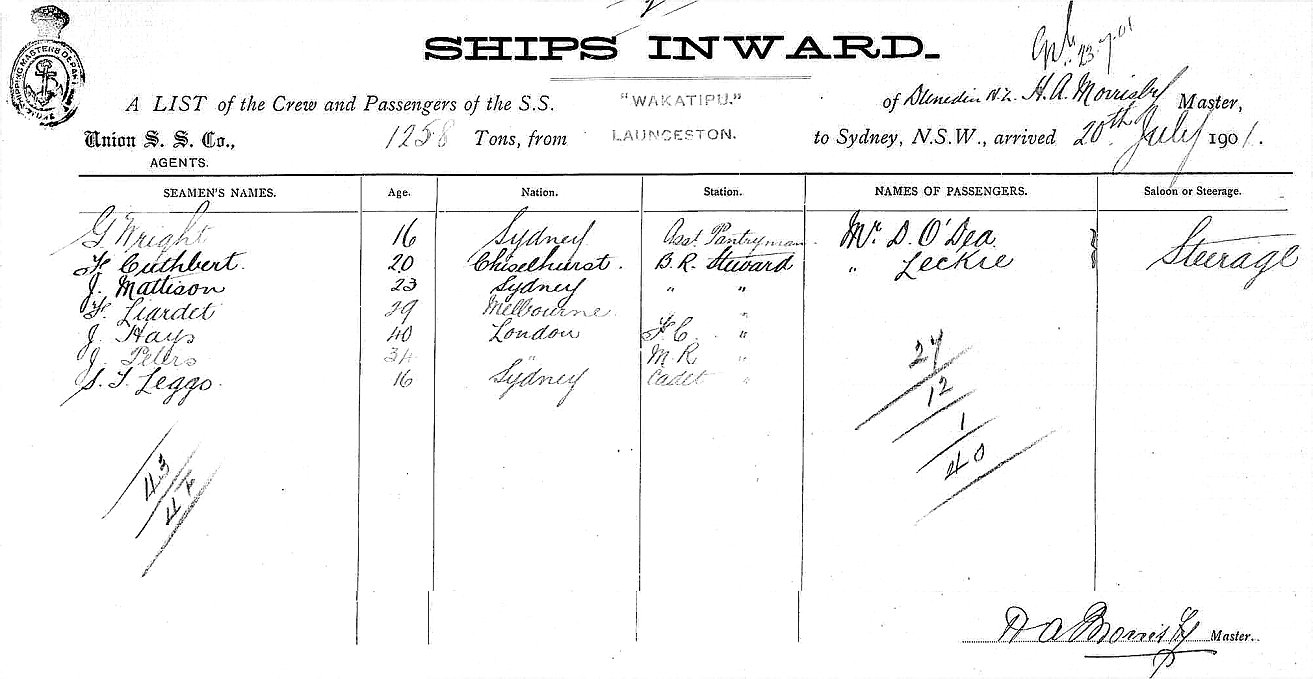 SHIPS INWARD.
23-7-01
A LIST of the Crew and Passengers of the S.S. "WAKATIPU." of Dunedin N.Z. H. A. Morrisby Master,
Union S. S. Co., 1258 Tons, from LAUNCESTON. to Sydney, N.S.W., arrived 20th July 1901.
AGENTS.
SEAMEN'S NAMES. Age. Nation. Station. NAMES OF PASSENGERS. Saloon or Steerage.
G Wright 16 Sydney Asst. Pantryman. Mr. D. O'Dea Steerage
F. Cuthbert. 20 Chiselhurst. B. R. Steward " Leckie
J. Mattison 23 Sydney " "
F. Liardet 29 Melbourne "
J. Hays 40 London F. C. "
J. Peters 34 " M. R. "
S. T. Leggo. 16 Sydney Cadet "
27
12
1
40
43
44
H A Morrisby Master.